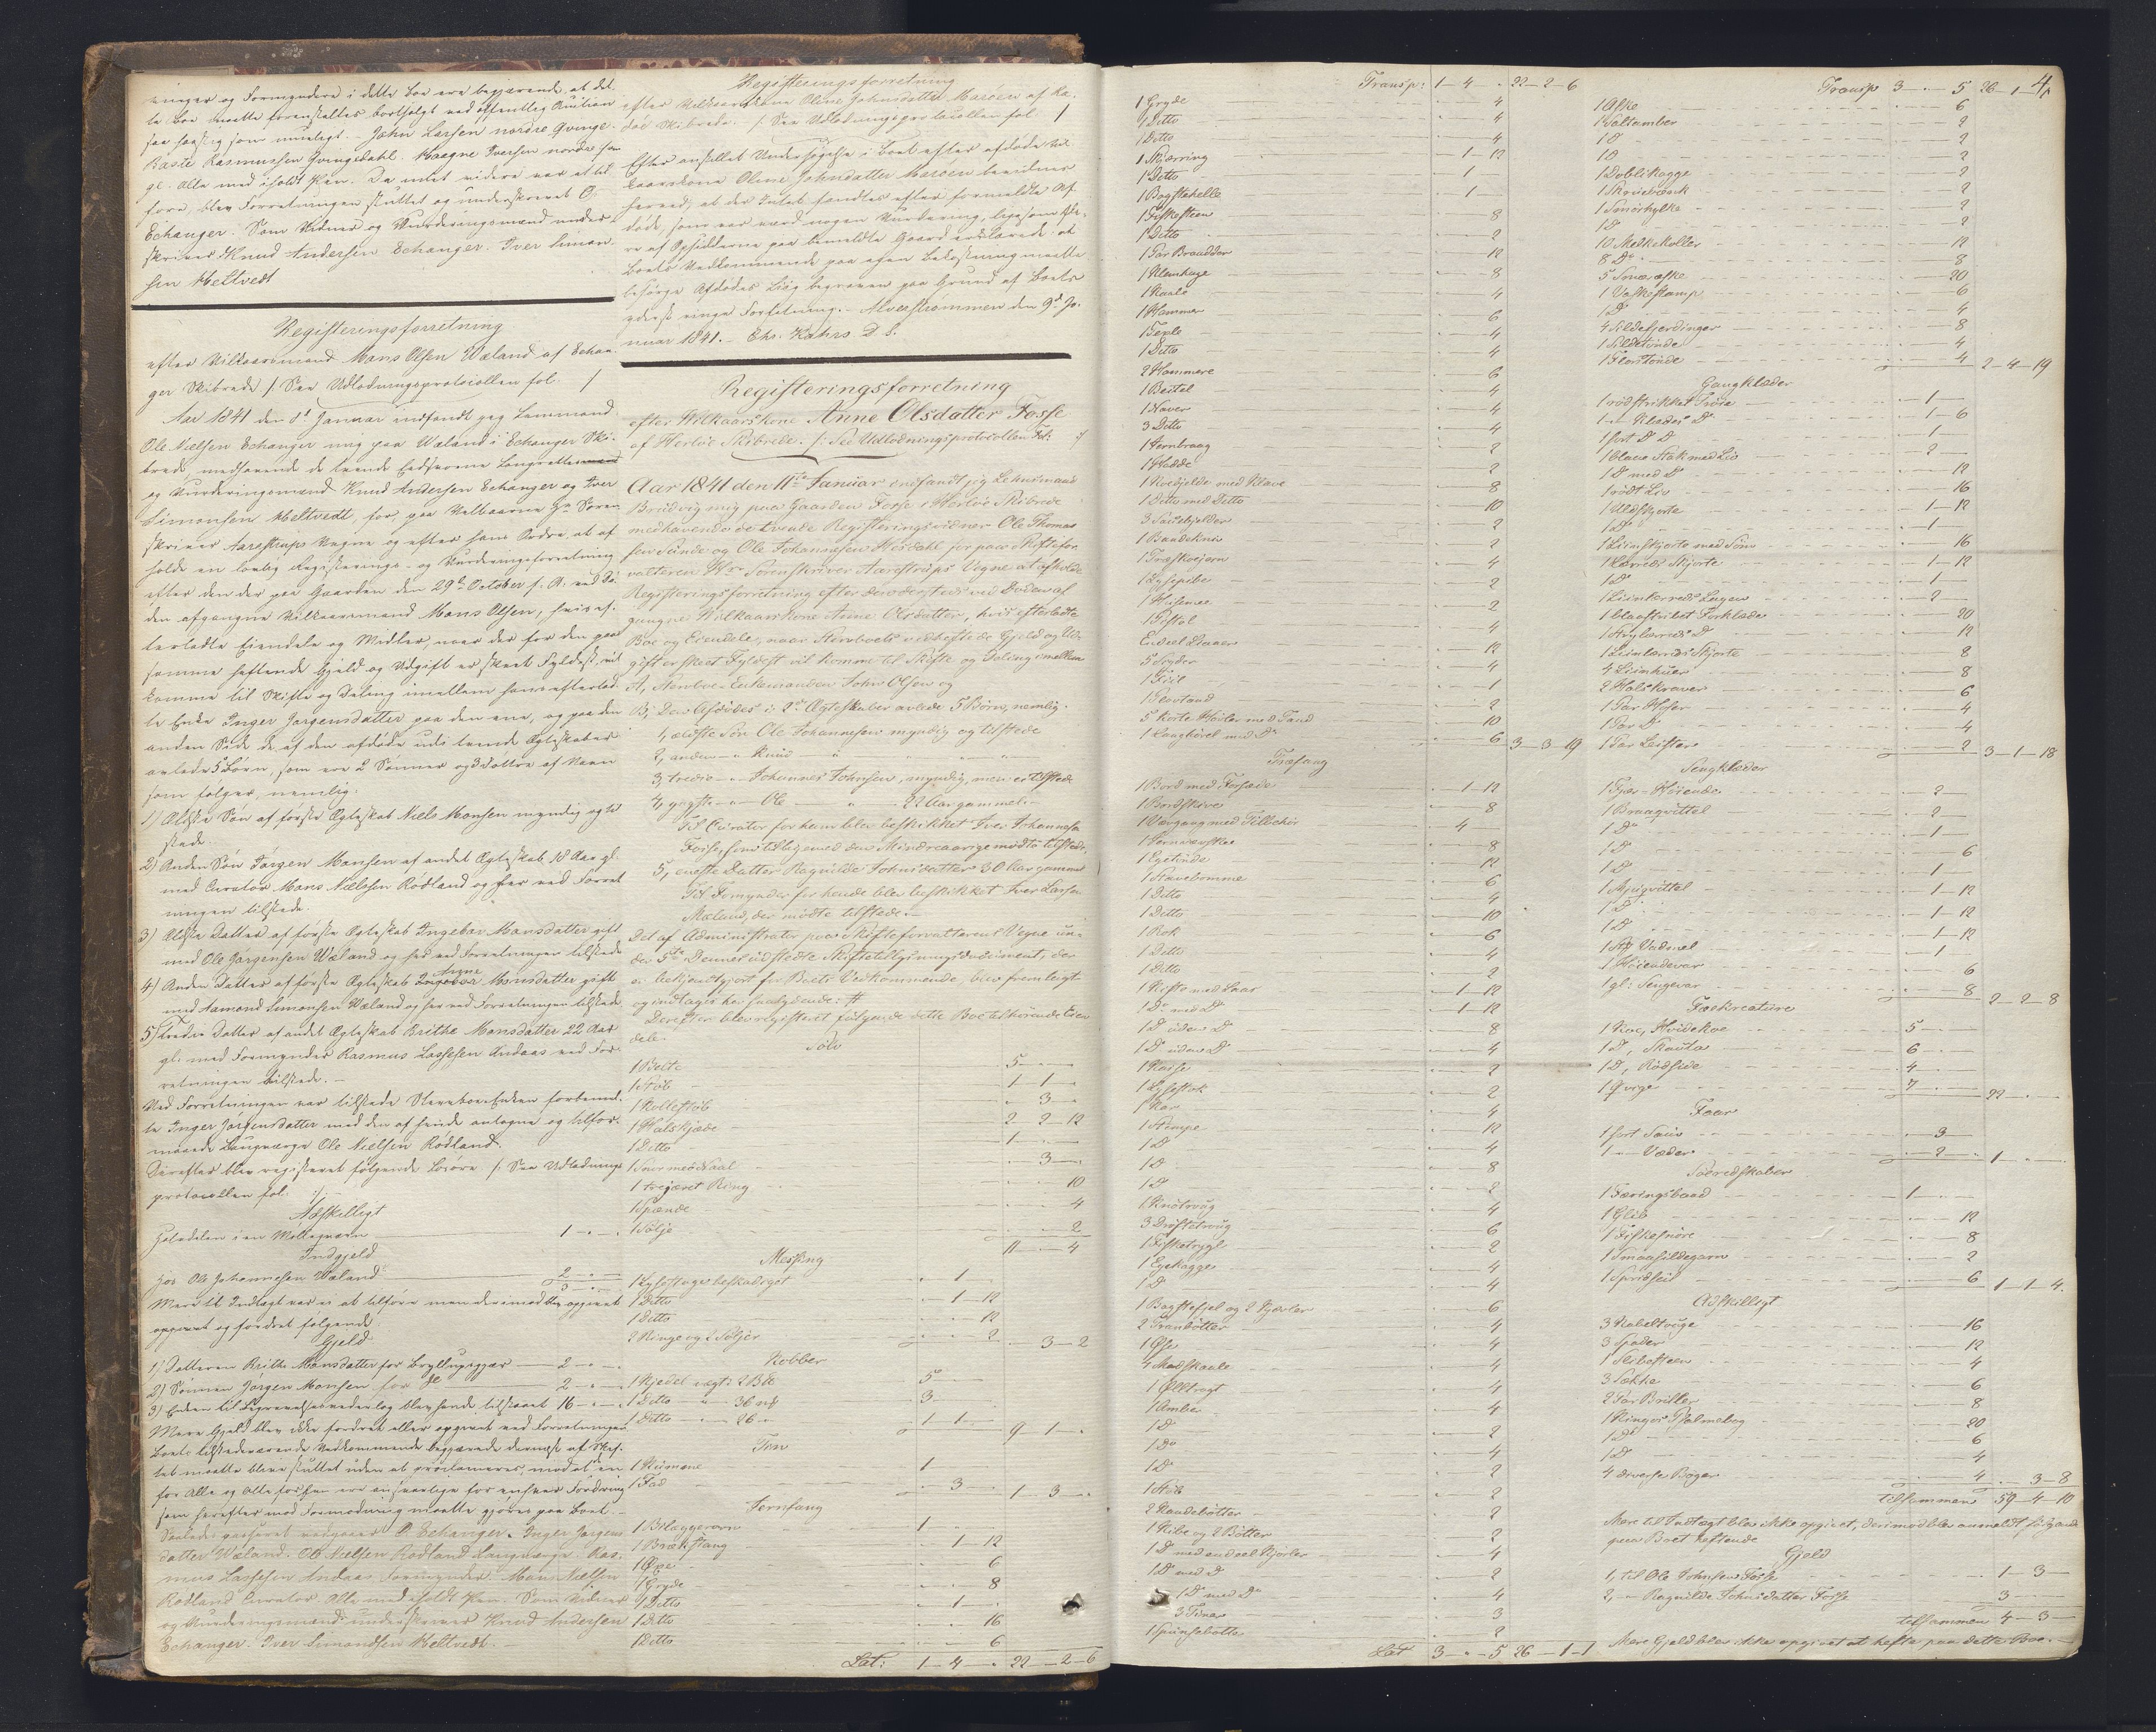 ninger og Formyndere i dette Boe ere begjærende, at det
te Boe maatte foranstaltes bortsolgt ved offentlig Auction
saa hastig som mueligt. - John Larsen nordre Qvinge.
Baste Rasmussen Qvingedahl. Magne Iversen nordre
gl. Alle med iholdt Pen. Da intet videre var at til
føre, blev Forretningen sluttet og underskrevet O
Echanger. Som Vidner og Vurderingsmænd under
skriver Knud Andersen Echanger. Iver Simon
sen Meltvedt
Registeringsforretning
efter Vilkaarsmand Mons Olsen Wæland af Echan
ger Skibrede /: See Udlodningsprotocollen fol. /
Aar 1841 den 8de Januar indfandt jeg Lensmand
Ole Nielsen Echanger mig paa Wæland i Echanger Ski
brede, medhavende de tvende Eedsvorne Laugrettesmænd
og Vurderingsmænd Knud Andersen Echanger og Iver
Simonsen Meltvedt, for, paa Velbaarne Hr Soren
skriver Aarestrups Vegne og efter hans Ordre at af
holde en lovlig Registerings- og Vurderingsforretning
efter den der paa Gaarden den 29de October f. A. ved Dø
den afgangne Vilkaarsmand Mons Olsen, hvis ef
terladte Eiendele og Midler, naar der for den paa
samme heftende Gjeld og Udgift er skeet Fyldest, vil
komme til Skifte og Deling imellem hans efterlad
te Enke Inger Jørgensdatter paa den ene, og paa den
anden Side de af den afdøde udi tvende Ægteskaber
avlede 5 Børn, som ere 2 Sønner og 3 Døttre af Navn
som følger, nemlig:
1) Ældste Søn af første Ægteskab Niels Monsen myndig og til
stede.
2) Anden Søn Jørgen Monsen af andet Ægteskab 18 Aar gl.
med Curator Mons Nielsen Rødland og her ved Forret
ningen tilstede.
3) Ældste Datter af første Ægteskab Ingebor Monsdatter gift
med Ole Jørgensen Wæland og her ved Forretningen tilstede
4) Anden Datter af første Ægteskab Ingebor Anne Monsdatter gift
med Aamond Simonsen Wæland og her ved Forretningen tilstede
5) Tredie Datter af andet Ægteskab Brithe Monsdatter 22 Aar
gl. med Formynder Rasmus Lassesen Andaas ved For
retningen tilstede. -
Ved Forretningen var tilstede Stervboe-Enken forbemeld
te Inger Jørgensdatter med den af hende antagne og tilfor
mænede Laugværge Ole Nielsen Rødland.
Derefter blev registeret følgende Løsøre /: See Udlodnings
protocollen fol. :/
Adskilligt
Halvdelen i en Møllegværn 1 - " - "
Indgjeld
hos Ole Johannesen Wæland 2 - " - "
3 - " - "
Mere til Indtægt var ei at tilføre men derimod blev opgivet
opgivet og fordret følgende
Gjeld
1) Datteren Brithe Monsdatter for Bryllupsgjær 2 - " - "
2) Sønnen Jørgen Monsen for do 2 - " - "
3) Enken til Begravelsesvederlag blev hende tilstaaet 16 - " - "
Mere Gjeld blev ikke fordret eller opgivet ved Forretningen
Boets tilstedeværende Vedkommende begjærede dernæst at Skif
tet maatte blive sluttet uden at proclameres, mod at de en
for Alle og Alle for Een ere ansvarlige for enhver Fordring
som herefter mod Formodning maatte gjøres paa Boet. -
Saaledes passeret vedgaaer O Echanger. Inger Jørgens
datter Wæland. Ole Nielsen Rødland Laugværge. Ras
mus Lassesen Andaas Formynder. Mons Nielsen
Rødland Curator. Alle med iholdt Pen. Som Vidner
og Vurderingsmænd underskriver Knud Andersen
Echanger. Iver Simondsen Meltvedt. -
Registeringsforretning
efter Vilkaarskone Oline Johnsdatter Marøen af Ra
døe Skibrede. /: See Udlodningsprotocollen fol /
Efter anstillet Undersøgelse i Boet efter afdøde Vil
kaarskone Oline Johnsdatter Marøen bevidnes
herved, at der Intet fandtes efter formeldte Af
døde, som var værd nogen Vurdering, ligesom Fle
re af Opsidderne paa bemeldte Gaard erklærede, at
Boets Vedkommende paa egen Bekostning maatte
besørge Afdødes Liig begraven paa Grund af Boets
yderst ringe Forfatning. - Alverstrømmen den 9de Ja
nuar 1841. - Chr. Kahrs D. S.
Registeringsforretning
efter Wilkaarskone Anne Olsdatter Fosse
af Herløe Skibrede. /: See Udlodningsprotocollen Fol: :/
Aar 1841 den 11te Januar indfandt jeg Lehnsmand
Brudvig mig paa Gaarden Fosse i Herløe Skibrede
medhavende de tvende Registeringsvidner Ole Thomas
sen Sunde og Ole Johannesen Hosdahl for paa Skiftefor
valteren Hr Sorenskriver Aarestrups Vegne at afholde
Registeringsforretning efter den dersteds ved Døden af
gangne Wilkaarskone Anne Olsdatter, hvis efterladte
Boe og Eiendele, naar Stervboets vedheftede Gjeld og Ud
gift er skeet Fyldest vil komme til Skifte og Deling imellem
A, Stervboe-Enkemanden John Olsen og
B, Den Afdødes i 2de Ægteskaber avlede 5 Børn, nemlig
1, ældste Søn Ole Johannesen myndig og tilstede
2, anden - " - Knud " " - " -
3 tredie - " - Johannes Johnsen, myndig, men ei tilstede
4, yngste - " - Ole - " - 22 Aar gammel. -
Til Curator for ham blev beskikket Iver Johannesen
Fosse, som tilligemed den Mindreaarige mødte tilstede.
5, eneste Datter Ragnilde Johnsdatter 30 Aar gammel
Til Formynder for hende blev beskikket Iver Larsen
Mæland, der mødte tilstede. -
Det af Administrator paa Skifteforvalterens Vegne un
der 5te Dennes udstedte Skiftetillysningsdocument, der
er bekjendtgjort for Boets Vedkommende, blev fremlagt
og indtages her saalydende: #
Derefter blev registeret følgende dette Boe tilhørende Eien
dele.
Sølv
1 Belte 5 - " - "
1 Støb 1 - 1 - "
1 Rollestøb " - 3 - "
1 Halskjæde 2 - 2 - 12
1 Ditto 1 - " - "
1 Snur med Naal " - 3 - "
1 tregæret Ring " - " - 10
1 Spænde " - " - 4
1 Sølje " - " - 2
11 - " - 4
Messing
1 Lysestage beskadiget " - 1 - "
1 Ditto " - 1 - 12
1 Ditto " - " - 12
2 Ringe og 2 Søljer " - " - 2 " - 3 - 2
Kobber
1 Kjedel vægt: 2 B℔ 5 - " - "
1 Ditto - " - 36 ℔ 3 - " - "
1 Ditto - " - 26 " 1 - 1 - " 9 - 1 - "
Tin
1 Kumme 1 - " - "
1 Fad " - 3 - " 1 - 3 - "
Jernfang
1 Bilæggerovn 1 - " - "
1 Brækstang " - 1 - 12
1 Øxe " - " - 6
1 Gryde " - " - 8
1 Ditto " - 1 - "
1 Ditto " - " - 16
1 Ditto " - " - 6
Lat: 1 - 4 - " 22 - 2 - 6
Transp: 1 - 4 - " 22 - 2 - 6
1 Gryde " - " - 4
1 Ditto " - " - 4
1 Ditto " - " - 4
1 Skjærring " - 1 - 12
1 Ditto " - 1 - "
1 Bagstehelle " - 1 - "
1 Fiskesteen " - " - 8
1 Ditto " - " - 2
1 Par Brandder " - " - 12
1 Klemhage " - " - 8
1 Kaale " - " - 4
1 Hammer " - " - 6
1 Texle " - " - 4
1 Ditto " - " - 4
2 Hammere " - " - 6
1 Beitel " - " - 4
1 Naver " - " - 4
3 Ditto " - " - 4
1 Jernbraag " - " - 2
1 Hadde " - " - 2
1 Koebjelde med Klave " - " - 8
1 Ditto med Ditto " - " - 10
3 Sauebjelder " - " - 2
1 Baandekniv " - " - 2
1 Træskoejern " - " - 4
1 Lysepibe " - " - 2
1 Huusmee " - " - 2
1 Pistol " - " - 4
Endeel Laaner " - " - 12
5 Snyder " - " - 4
1 Fiil " - " - 1
1 Peistand " - " - 2
5 korte Høvler med Tand " - " - 10
1 Langhøvel med Do " - " - 6 3 - 3 - 19
Træfang
1 Bord med Forsæde " - 1 - 12
1 Bordskive " - " - 8
1 Værgang med Tilbehør " - 4 - "
1 Fernaæske " - " - 8
1 Egetønde " - " - 12
1 Stavebomme " - " - 6
1 Ditto " - " - 4
1 Ditto " - " - 10
1 Rok " - " - 6
1 Ditto " - " - 4
1 Ditto " - " - 2
1 Kiste med Laas " - 1 - 12
1 Do med Do " - 1 - 12
1 D uden D " - " - 8
1 D uden D " - " - 4
1 Kasse " - " - 2
1 Lysestok " - " - 2
1 Kar " - " - 4
1 Stampe " - " - 12
1 D " - " - 4
1 D " - " - 8
1 D " - " - 2
1 Knøtroug " - " - 4
3 Drøftetroug " - " - 6
1 Fisketrygl " - " - 2
1 Egekagge " - " - 4
1 D " - " - 4
1 Bagstefjel og 2 Kjævler " - " - 6
2 Tranbøtter " - " - 4
1 Øse " - " - 4
4 Madskaale " - " - 4
1 Øltragt " - " - 4
1 Ambar " - " - 4
1 D " - " - 2
1 Do " - " - 4
1 D " - " - 2
1 Støb " - " - 2
2 Vandebøtter " - " - 2
1 Kibe og 2 Bøtter " - " - 2
1 D med endeel Kjørler " - " - 4
1 D med D " - " - 2
1 D med Do " - " - 4
3 Tiner " - " - 3
1 Spundsebøtte " - " - 2
Lat 3 - " - 5 26 - 1 - 1
4
Transp 3 - " - 5 26 - 1 - 1
1 Aske " - " - 6
1 Saltamber " - " - 2
1 D " - " - 2
1 D " - " - 2
1 Doblikagge " - " - 2
1 Skruebænk " - " - 2
1 Smørhylke " - " - 2
1 D " - " - 2
10 Melkekoller " - " - 12
8 Do " - " - 8
5 Smøræske " - " - 20
1 Vaskestamp " - " - 6
1 D " - " - 4
4 Sildefjerdinger " - " - 8
1 Sildetønde " - " - 4
1 Flostønde " - " - 4 2 - 4 - 19
Gangklæder
1 rødstrikket Trøie " - 1 - "
1 " Klædes Do " - 1 - 6
1 sort D D " - 1 - "
1 blaae Stak med Liv " - 2 - "
1 D med D " - " - 12
1 rødt Liv " - " - 16
1 Uldskjorte " - 1 - 12
1 D " - 1 - "
1 Liinskjorte med Sølv " - " - 16
1 Lærreds Skjorte " - 1 - 12
1 D " - 1 - "
1 Liinlærreds Lagen " - 2 - "
1 blaastribet Forklæde " - " - 20
1 Strylærreds D " - " - 12
1 Liinlærreds Skjorte " - " - 8
4 Liinhuer " - " - 8
2 Halskraver " - " - 6
1 Par Hoser " - " - 4
1 Par D " - " - 4
1 Par Leister " - " - 2 3 - 1 - 18
Sengklæder
1 Fjær-Høiende " - 2 - "
1 Braagvittel " - 2 - "
1 Do " - 1 - "
1 D " - " - 6
1 D " - 1 - "
1 Spigvittel " - 1 - 12
1 D " - 1 - 12
1 D " - 1 - 12
1 St Vadmel " - 1 - "
1 Høiendevar " - " - 6
1 gl: Sengevar " - " - 8 2 - 2 - 8
Fækreature
1 Koe, Hvidekoe 5 - " - "
1 D, Skauta 6 - " - "
1 D, Rødside 4 - " - "
1 Qvige 7 - " - " 22 - " - "
Faar
1 sort Sau " - 3 - "
1 " Væder " - 2 - " 1 - " - "
Søeredskaber
1 Færingsbaad 1 - " - "
1 Glib " - " - 12
1 Fiskesnøre " - " - 8
1 Smaasildegarn " - " - 2
1 Spridseil " - " - 6 1 - 1 - 4
Adskilligt
3 Kabeltouge " - " - 16
3 Spader " - " - 12
1 Slibesteen " - " - 4
3 Sække " - " - 6
2 Par Briller " - " - 8
1 Kingos Psalmebog " - " - 20
1 Do " - " - 6
1 D " - " - 4
4 diverse Bøger " - " - 4 " - 3 - 8
tilsammen 59 - 4 - 10
Mere til Indtægt blev ikke opgivet, derimod blev anmeldt følgende
paa Boet heftende
Gjeld
1, til Ole Johnsen Fosse " - 1 - 3 - "
2, - " Ragnilde Johnsdatter Fosse 3 - " - "
tilsammen 4 - 3 - "
Mere Gjeld blev ikke opgivet at hefte paa dette Boe. -